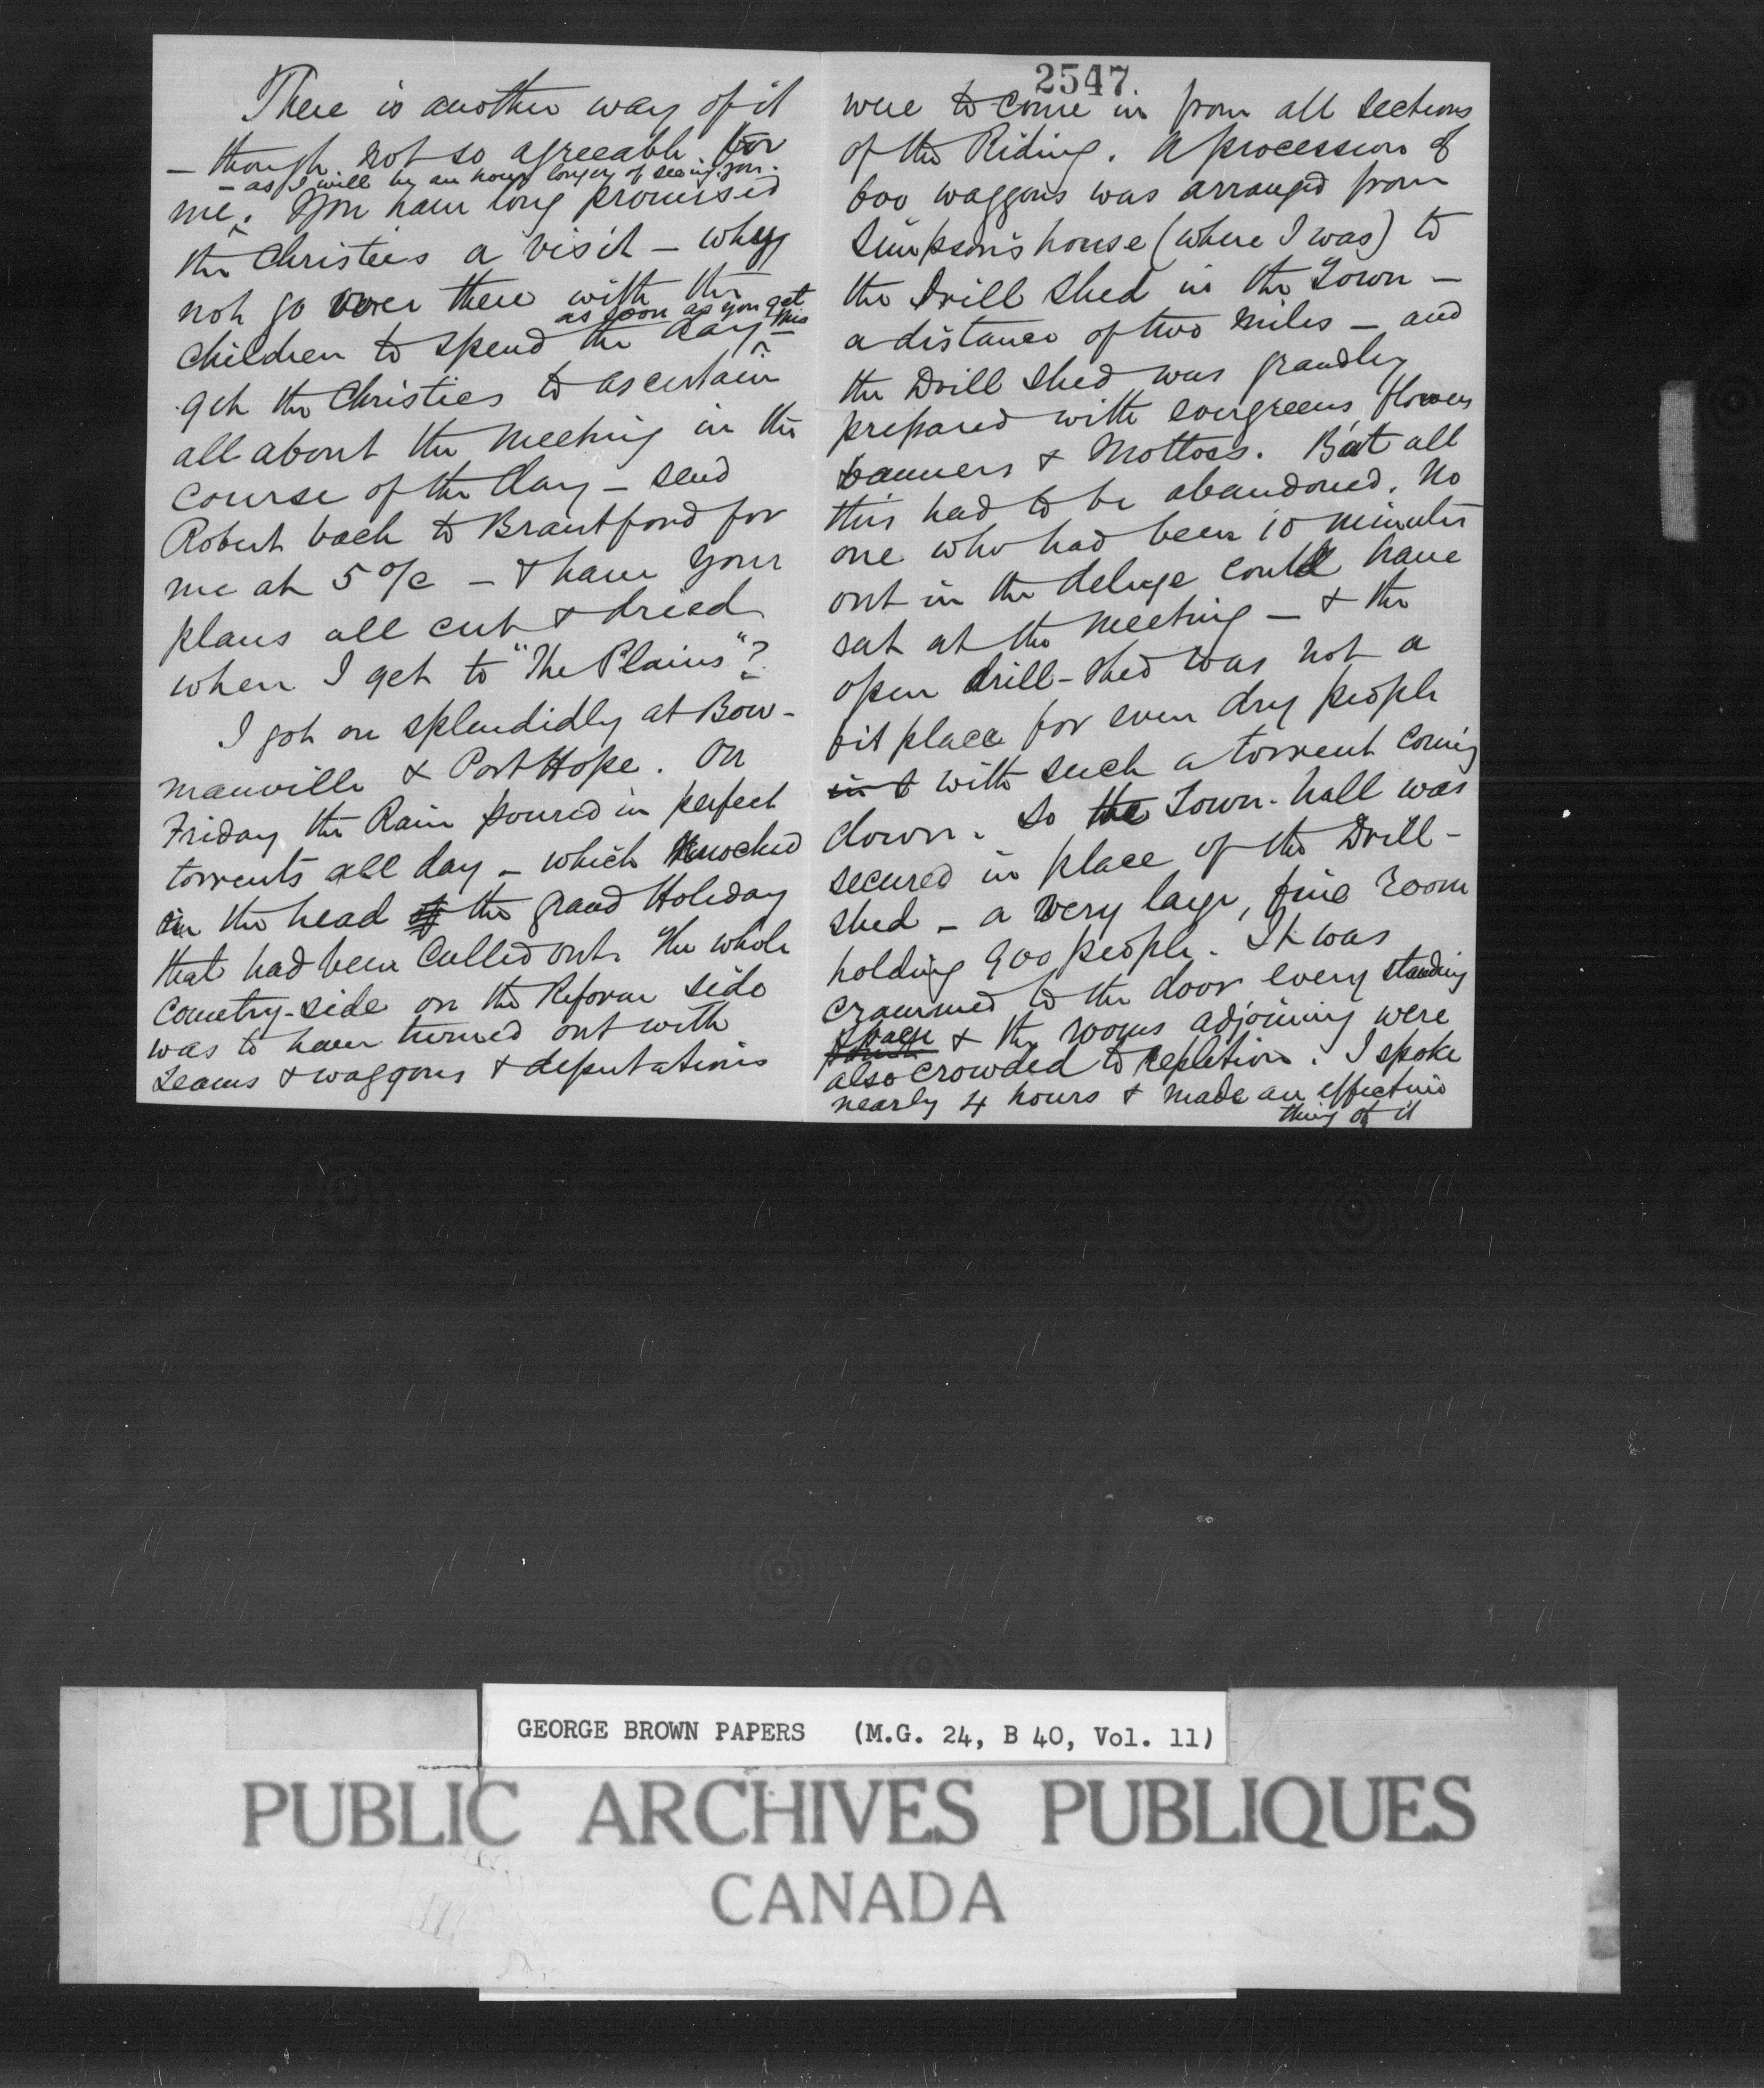 There is another way of it
— though not so agreeable for
— as I will be an hour longer of seeing you.
me. You have long promised
the Christies a visit — why
not go over there with the
children to spend the day —
as soon as you get this
get the Christies to ascertain
all about the meeting in the
course of the day — send
Robert back to Brantford for
me at 5 o/c — & have your
plans all cut & dried
when I get to "The Plains"?
I got on splendidly at Bow-
manville & Port Hope. On
Friday the Rain poured in perfect
torrents all day — which knocked
in the head of the grand Holiday
that had been called out. The whole
country-side on the Reform side
was to have turned out with
teams & waggons & deputations
2547
were to come in from all sections
of the Riding. A procession of
600 waggons was arranged from
Simpson's house (where I was) to
the Drill Shed in the Town —
a distance of two miles — and
the Drill Shed was grandly
prepared with evergreens, flowers
banners & Mottoes. But all
this had to be abandoned. No
one who had been 10 minutes
out in the deluge could have
sat at the meeting — & the
open drill-shed was not a
fit place for even dry people
in & with such a torrent coming
down. So the Town-hall was
secured in place of the Drill-
shed — a very large, fine room
holding 900 people. It was
crammed to the door every standing
space & the rooms adjoining were
also crowded to repletion. I spoke
nearly 4 hours & made an effective
thing of it
GEORGE BROWN PAPERS (M.G. 24, B 40, Vol. 11)
PUBLIC ARCHIVES PUBLIQUES
CANADA